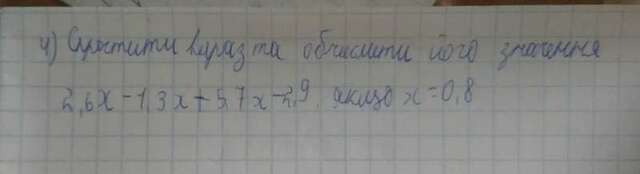 4) Спростити вираз та обчислити його значення
2,6x - 1,3x + 5,7x - 2,9, якщо x = 0,8